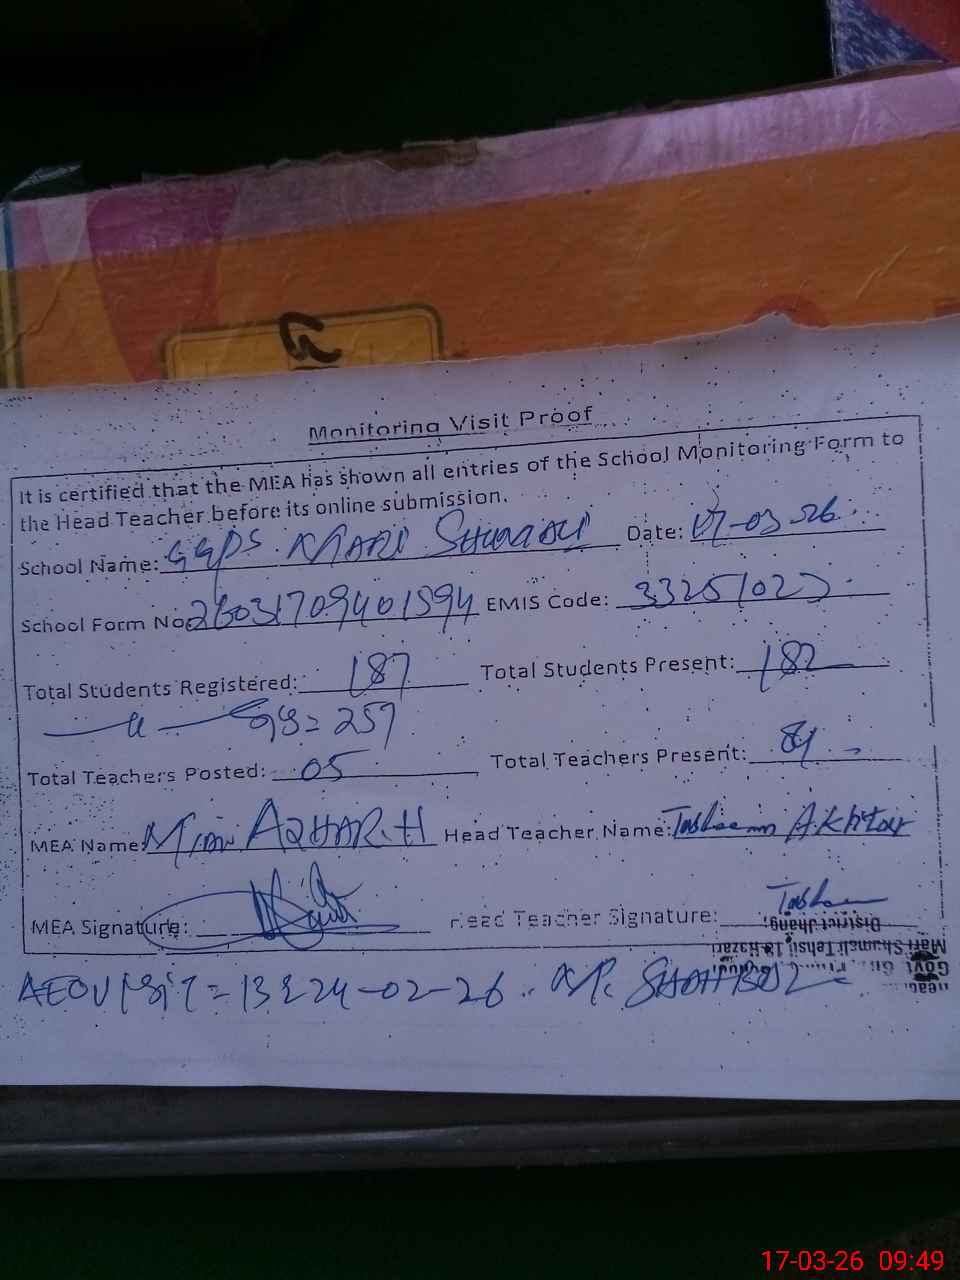 Monitoring Visit Proof
It is certified that the MEA has shown all entries of the School Monitoring Form to
the Head Teacher before its online submission.
School Name: GGPS MARI SHUMALI Date: 17-03-26
School Form No: 26031709401594 EMIS Code: 33251023
Total Students Registered: 187 Total Students Present: 182
= 257
Total Teachers Posted: 05 Total Teachers Present:
MEA Name: Mian AZHAR.H Head Teacher Name: Tasleem Akhtar
MEA Signature: Head Teacher Signature:
District Jhang
Mari Shumali Tehsil 18 Hazari
Govt
Head
AEO Visit = 13 & 24-02-26
17-03-26 09:49